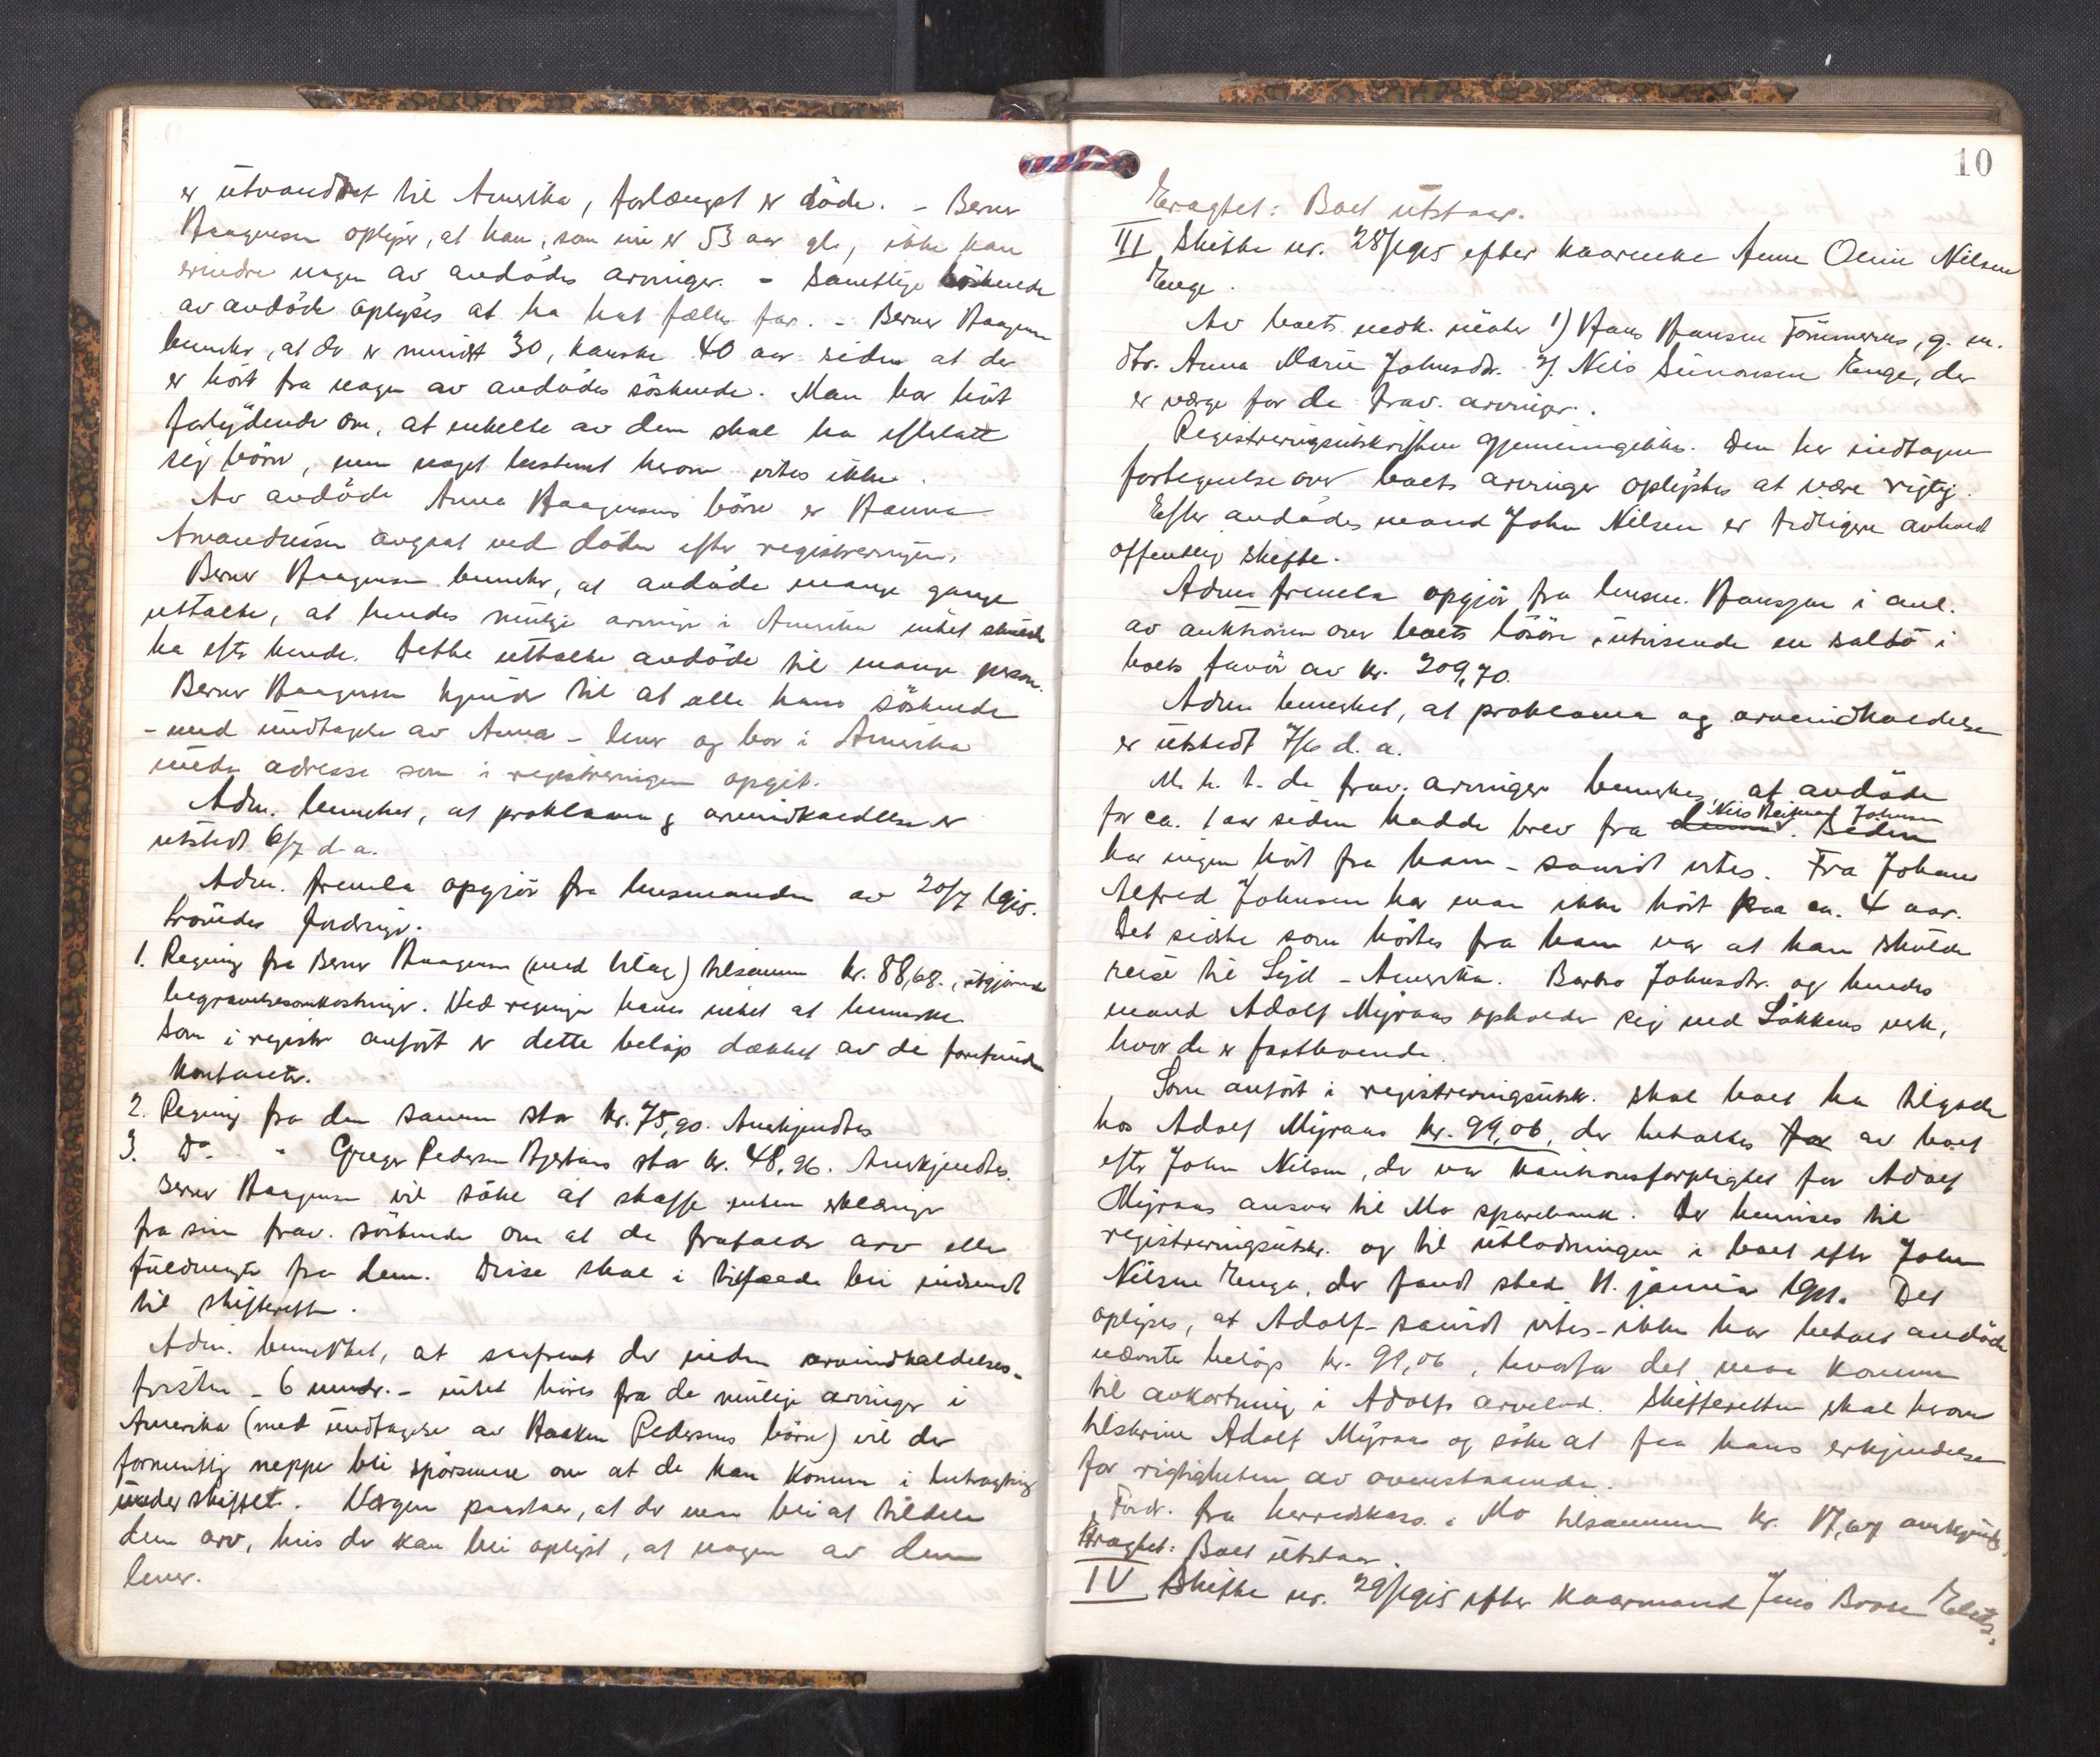 er utvandret til Amerika, forlængst er döde. - Berner
Haagensen oplyser, at han, som nu er 53 aar gl., ikke kan
erindre nogen av avdödes arvinger. - Samtlige söskende
av avdöde oplyses at ha hat fælles far. - Berner Haagensen
bemerker, at der er mindst 30, kanske 40 aar siden at der
er hört fra nogen av avdödes söskende. Man har hört
forlydende om, at enkelte av dem skal ha efterlatt
sig börn, men noget bestemt herom vites ikke.
Av avdöde Anna Haagensens börn er Hanna
Amandussen avgaat ved döden efter registreringen.
Berner Haagensen bemerker, at avdöde mange gange
uttalte, at hendes mulige arvinger i Amerika intet skulde
ha efter hende. Dette uttalte avdöde til mange person.
Berner Haagensen kjender til at alle hans söskende
- med undtagelse av Anna - lever og bor i Amerika
under adresse som i registreringen opgit.
Adm. bemerket, at proklama og arveindkaldelse er
utstedt 6/7 d. a.
Adm. fremla opgjör fra lensmanden av 20/7 1915.
Gjordes fordringer.
1. Regning fra Berner Haagensen (med bilag) tilsammen kr. 88,68., utgjörende
begravelsesomkostninger. Ved regningen haves intet at bemerke.
Som i registr. anfört er dette beløp dækket av de forefundne
kontanter.
2. Regning fra den samme stor kr. 75,90. Anerkjendtes
3. Do. " Greger Pedersen stor kr. 48,96. Anerkjendtes.
Berner Haagensen vil söke at skaffe enten erklæringer
fra sine frav. söskende om at de frafalder arv eller
fuldmagter fra dem. Disse skal i tilfælde bli indsendt
til skifteretten.
Adm. bemerket, at saafremt der inden arveindkaldelses-
fristen - 6 mndr. - intet höres fra de mulige arvinger i
Amerika (med undtagelse av Haaken Pedersens börn) vil der
formentlig neppe bli spörsmaal om at de kan komme i betragtning
under skiftet. Værgen paastaar, at der maa bli at tildele
dem arv, hvis det kan bli oplyst, at nogen av dem
lever.
10
Eragtet: Boet utstaar.
III Skifte nr. 28/1915 efter kaarenke Anne Oline Nilsen
Enge.
Av boets vedk. möter 1) Hans Hansen Tömmeraas, g. m.
dtr. Anna Marie Johnsdr. 2). Nils Simonsen Enge, der
er værge for de frav. arvinger.
Registreringsutskriften gjennemgikkes. Den her indtagne
fortegnelse over boets arvinger oplystes at være rigtig.
Efter avdödes mand John Nilsen er tidligere avholdt
offentlig skifte.
Adm. fremla opgjör fra lensm. Hansson i anl.
av auktionen over boets lösöre, utvisende en saldo i
boets favör av kr. 209,70.
Adm. bemerket, at proklama og arveindkaldelse
er utstedt 7/6 d. a.
M. h. t. de frav. arvinger bemerkes, at avdöde
for ca. 1 aar siden hadde brev fra Nils Johnsen. Siden
har ingen hört fra ham - saavidt vites. Fra Johan
Alfred Johnsen har man ikke hört paa ca. 4 aar.
Det sidste som hörtes fra ham var at han skulde
reise til Syd-Amerika. Barbro Johnsdr. og hendes
mand Adolf Myraas opholder sig ved Lökkens verk,
hvor de er fastboende.
Som anfört i registreringsutsk. skal boet ha tilgode
hos Adolf Myraas kr. 99,06, der betaltes av boet
efter John Nilsen, der var kautionsforpligtet for Adolf
Myraas ansvar til Mo sparebank. Der henvises til
registreringsutskr. og til utlodningen i boet efter John
Nilsen Enge, der fandt sted 11. januar 1911. Det
oplyses, at Adolf - saavidt vites - ikke har betalt avdöde
nævnte beløp kr. 99,06, hvorfor det maa komme
til avkortning i Adolfs arvelod. Skifteretten skal herom
tilskrive Adolf Myraas og söke at faa hans erkjendelse
for rigtigheten av ovenstaaende.
Fordr. fra herredskass. i Mo tilsammen kr. 17,67 anerkjendtes.
Eragtet: Boet utstaar.
IV Skifte nr. 29/1915 efter kaarmand Jens